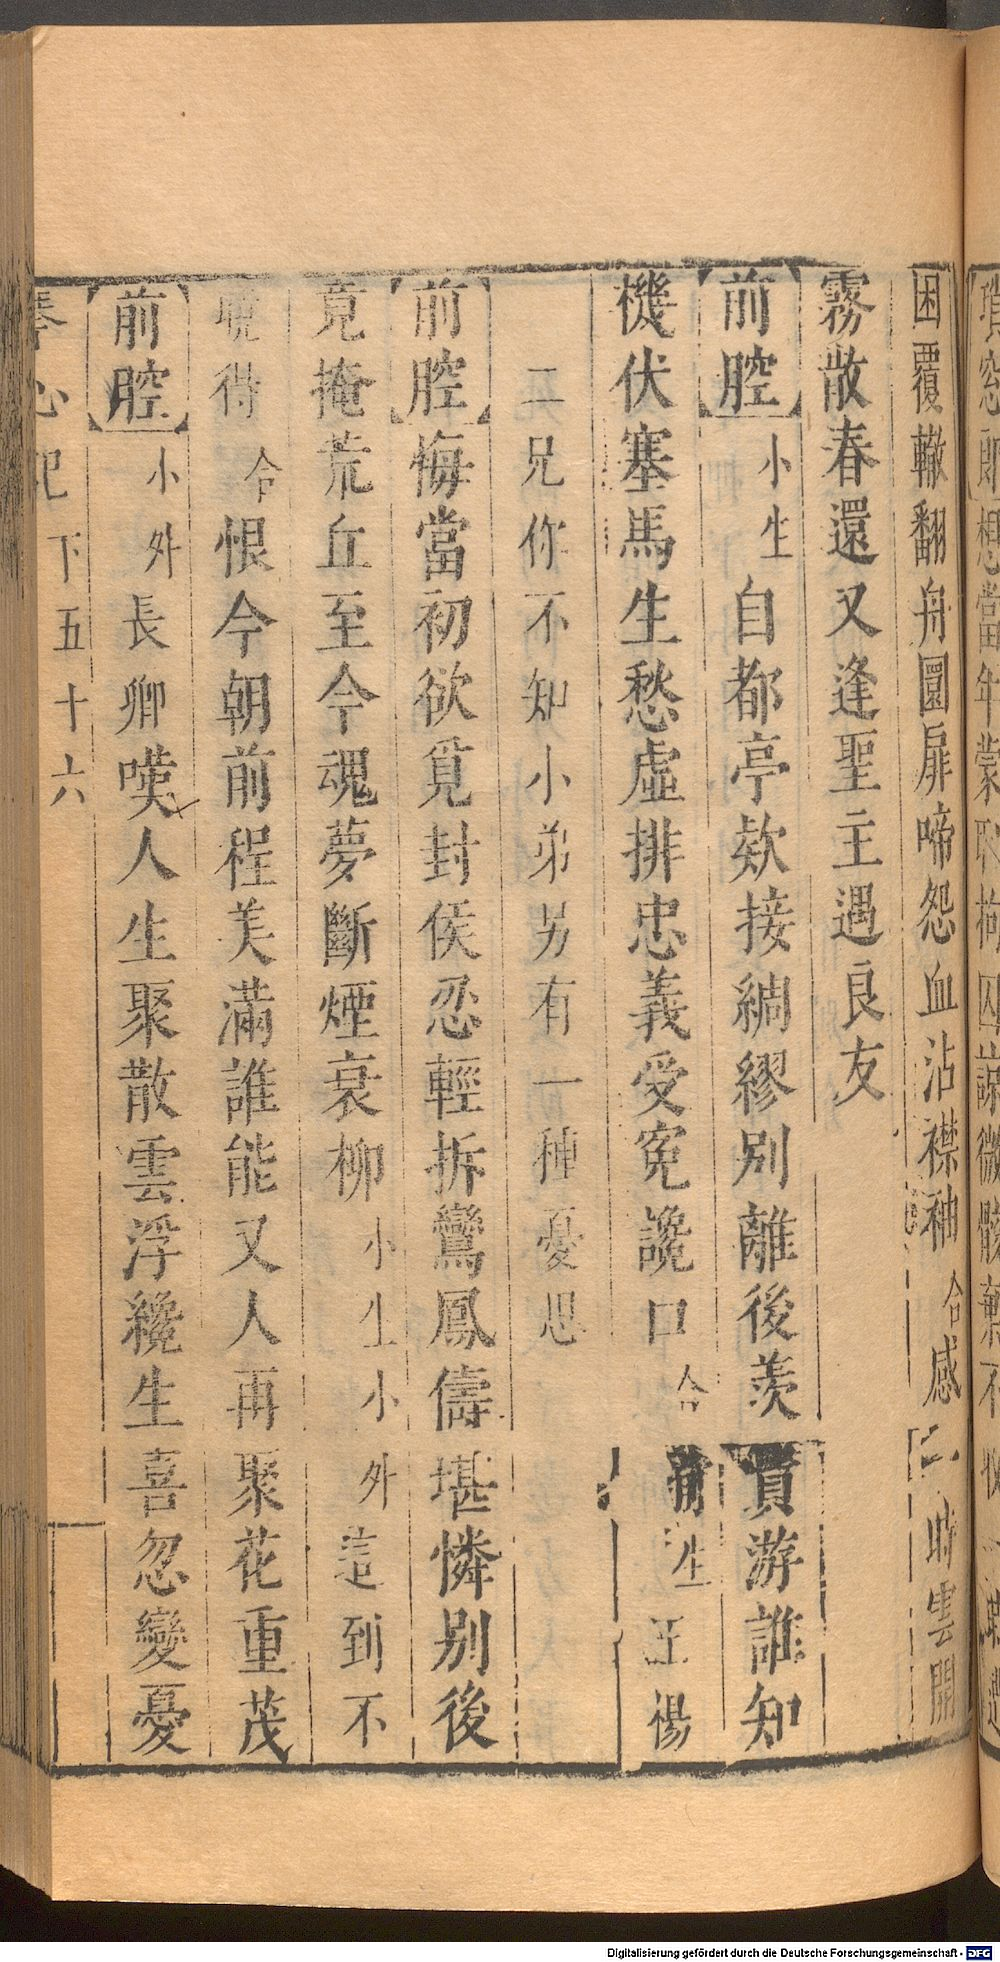 想當年蒙
困覆轍翻舟圜扉啼怨血沾襟袖合感一時雲開
霧散春還又逢聖主遇良友
前腔小生自都亭欵接綢繆别離後羨貢游誰知
機伏塞馬生愁虛排忠義受冤讒口合前生王楊
二兄你不知小弟另有一種憂思
前腔悔當初欲覓封侯忍輕拆鸞鳳儔堪憐别後
竟掩荒丘至今魂夢斷煙衰柳小生小外這到不
曉得合恨今朝前程美滿誰能又人再聚花重茂
前腔小外長卿嘆人生聚散雲浮纔生喜忽變憂
琴心記下五十六
Digitalisierung gefördert durch die Deutsche Forschungsgemeinschaft - DFG